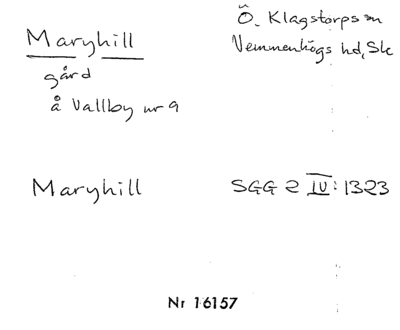 Maryhill
gård
å Vallby nr 9
Ö. Klagstorps sn
Vemmenhögs hd, Sk
Maryhill
SGG 2 IV: 1323
Nr 16157